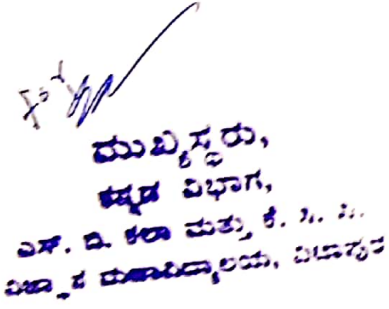 ಮುಖ್ಯಸ್ಥರು,
ಕನ್ನಡ ವಿಭಾಗ,
ಎಸ್. ಬಿ. ಕಲಾ ಮತ್ತು ಕೆ.
ವಿಜ್ಞಾನ ಮಹಾವಿದ್ಯಾಲಯ,